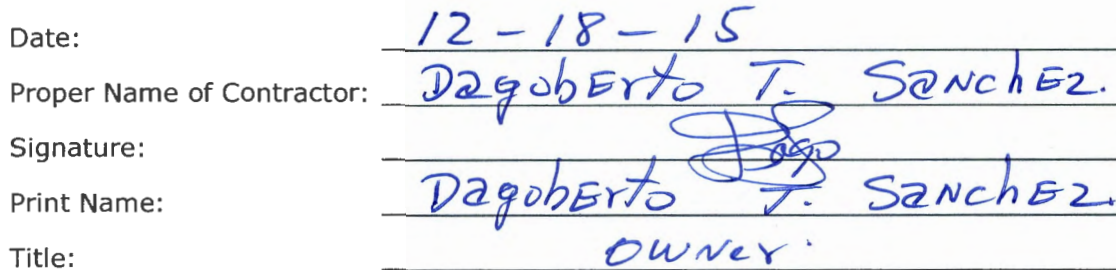 Date: 12-18-15
Proper Name of Contractor: DagobErto T. SaNchEz.
Signature: Dago
Print Name: DagobErto T. SaNchEz.
Title: OWNer.